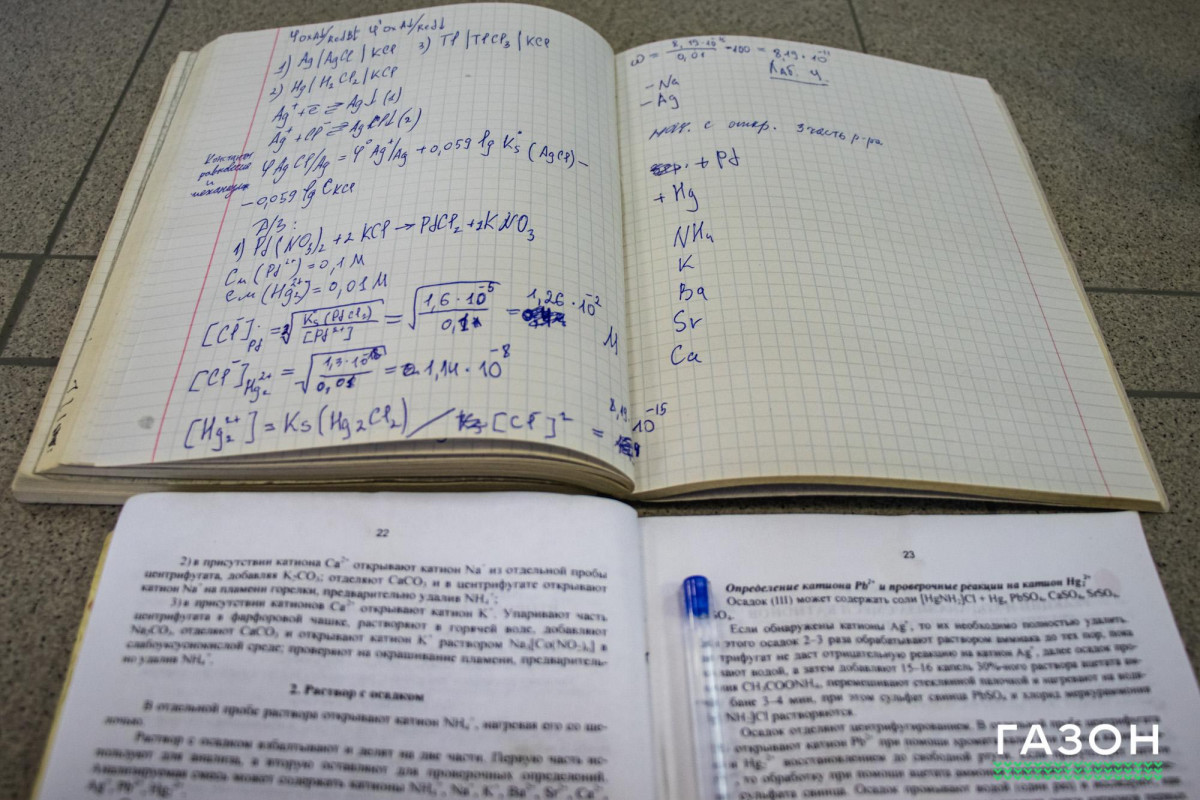 1) Ag | AgCl | KCl 3) Tl | TlCl₃ | KCl
2) Hg | H₂Cl₂ | KCl
Ag⁺ + e ⇄ Ag↓ (1)
Ag⁺ + Cl⁻ ⇄ AgCl↓ (2)
φ AgCl/Ag = φ° Ag⁺/Ag + 0,059 lg Ks° (AgCl) –
– 0,059 lg C KCl
Д/З:
(NO₃)₂ + 2 KCl → + 2KNO₃
= 0,1 М
См (Hg₂²⁺) = 0,01 М
= √ 1,6 · 10⁻⁵ / = 1,26 · 10⁻² М
[Cl⁻] Hg₂²⁺ = = 1,14 · 10⁻⁸
[Hg₂²⁺] = Ks (Hg₂Cl₂) / [Cl⁻]² = 8,19 · 10⁻¹⁵
ω = / 0,01 · 100 = 8,19 · 10⁻¹¹
Лаб. 4.
– Na
– Ag
с откр. 3 часть р-ра
+ Hg
NH₄
K
Ba
Sr
Ca
22
2) в присутствии катиона Ca²⁺ открывают катион Na⁺ из отдельной пробы
центрифугата, добавляя K₂CO₃; отделяют CaCO₃ и в центрифугате открывают
катион Na⁺ на пламени горелки, предварительно удалив NH₄⁺;
3) в присутствии катионов Ca²⁺ открывают катион K⁺. Упаривают часть
центрифугата в фарфоровой чашке, растворяют в горячей воде, добавляют
Na₂CO₃, отделяют CaCO₃ и открывают катион K⁺ раствором Na₃[Co(NO₂)₆] в
слабоуксуснокислой среде; проверяют на окрашивание пламени, предваритель-
но удалив NH₄⁺.
2. Раствор с осадком
В отдельной пробе раствора открывают катион NH₄⁺, нагревая его со ще-
лочью.
Раствор с осадком взбалтывают и делят на две части. Первую часть ис-
пользуют для анализа, а вторую оставляют для проверочных определений.
Анализируемая смесь может содержать катионы NH₄⁺, Na⁺, K⁺, Ba²⁺, Sr²⁺, Ca²⁺,
Ag⁺, Pb²⁺, Hg₂²⁺.
23
Определение катиона Pb²⁺ и проверочные реакции на катион Hg₂²⁺
Осадок (III) может содержать соли [HgNH₂]Cl + Hg, PbSO₄, CaSO₄, SrSO₄,
Если обнаружены катионы Ag⁺, то их необходимо полностью удалить.
этого осадок 2–3 раза обрабатывают раствором аммиака до тех пор, пока
трифугат не даст отрицательную реакцию на катион Ag⁺, далее осадок про-
вают водой, а затем добавляют 15–16 капель 30%-ного раствора ацетата ам-
ния CH₃COONH₄, перемешивают стеклянной палочкой и нагревают на водя-
бане 3–4 мин, при этом сульфат свинца PbSO₄ и хлорид меркураммония
NH₂]Cl растворяются.
Осадок отделяют центрифугированием. В
открывают катион Pb²⁺ при помощи
и Hg₂²⁺ восстановлением до свободной
то обработку при помощи ацетата
сульфата свинца. Осадок промывают водой (один раз) и
ГАЗОН